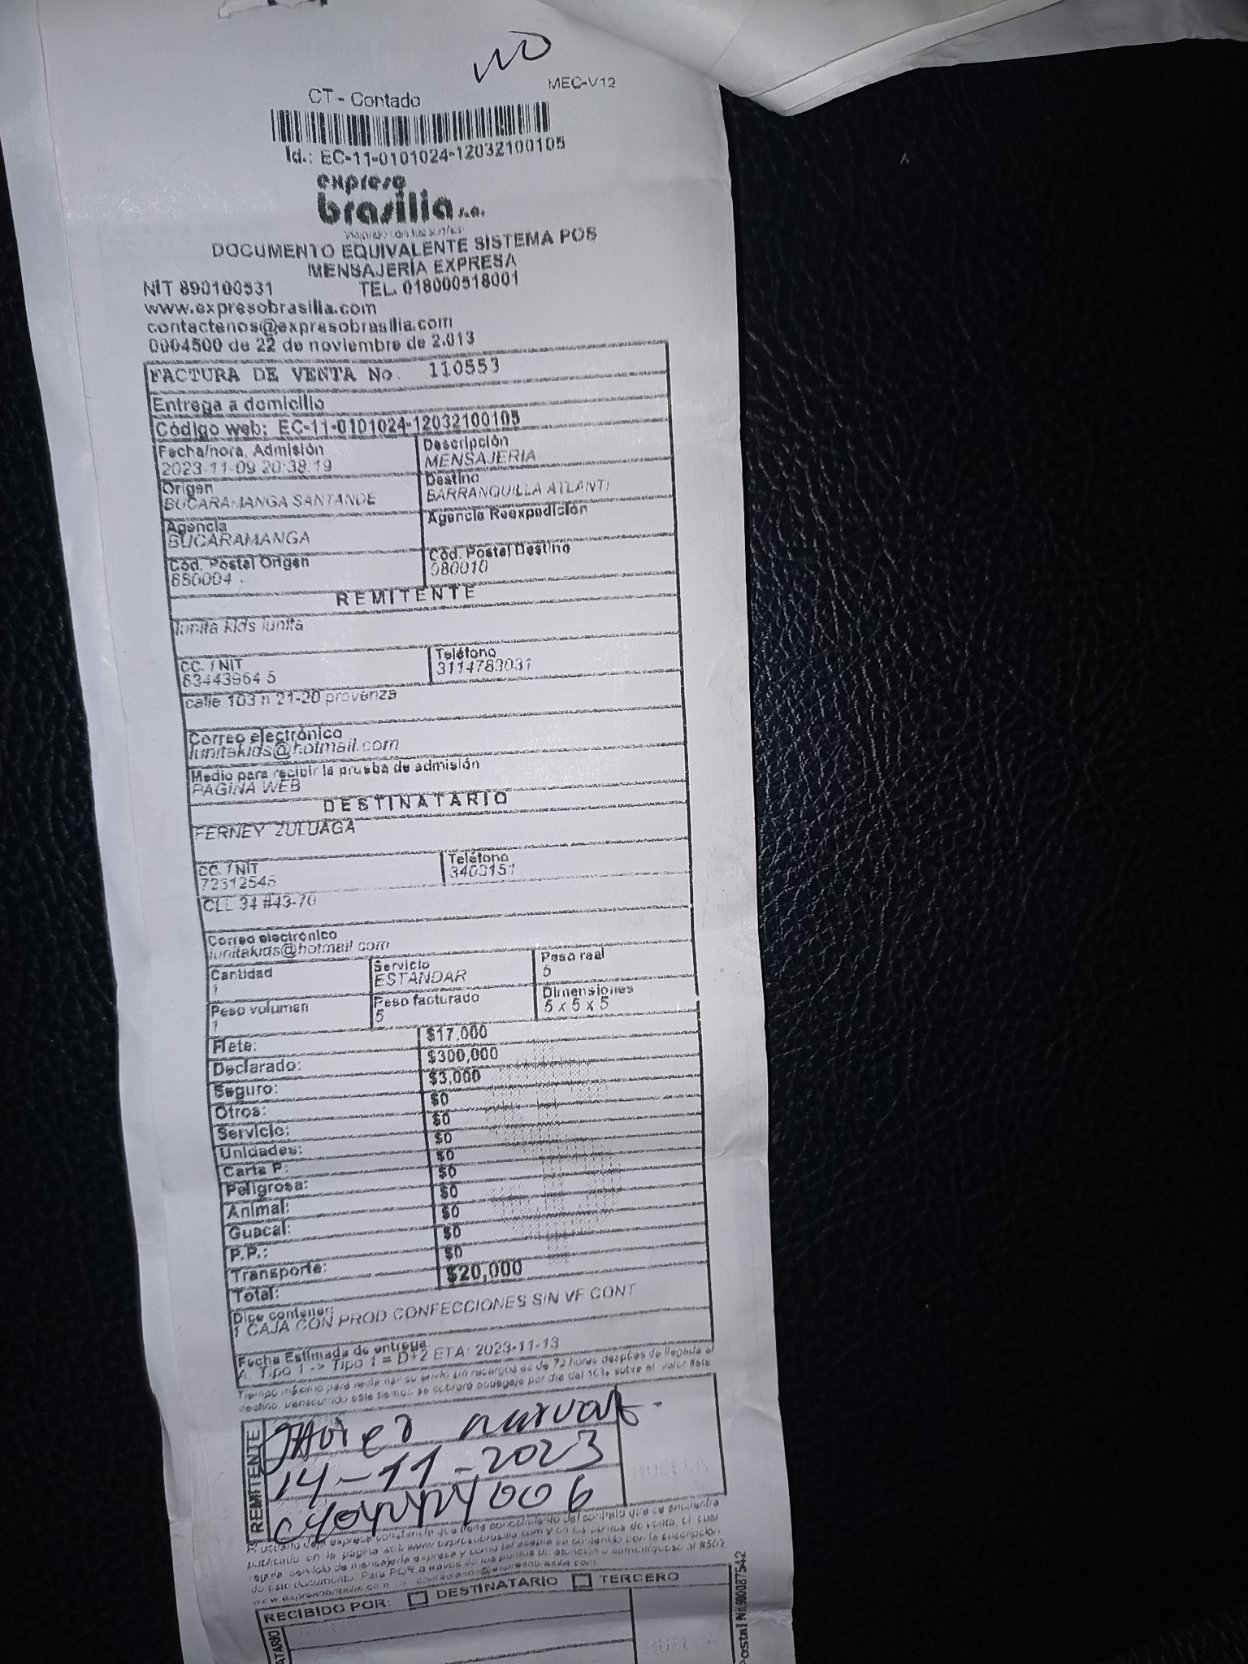 NO
MEC-V12
CT - Contado
Id.: EC-11-0101024-12032100105
expreso
brasilia s.a.
DOCUMENTO EQUIVALENTE SISTEMA POS
MENSAJERÍA EXPRESA
NIT 890100531 TEL. 018000518001
www.expresobrasilia.com
contactenos@expresobrasilia.com
0004500 de 22 de noviembre de 2.013
FACTURA DE VENTA No. 110553
Entrega a domicilio
Código web: EC-11-0101024-12032100105
Fecha/hora, Admisión Descripción
2023-11-09 20:38:19 MENSAJERIA
Origen Destino
BUCARAMANGA SANTANDE BARRANQUILLA ATLANTI
Agencia Agencia Reexpedición
BUCARAMANGA
Cód. Postal Origen Cód. Postal Destino
680004 080010
REMITENTE
lunita kids lunita
CC. / NIT Teléfono
63443964 5 3114783031
calle 103 n 21-20 provenza
Correo electrónico
lunitakids@hotmail.com
Medio para recibir la prueba de admisión
PAGINA WEB
DESTINATARIO
FERNEY ZULUAGA
CC. / NIT Teléfono
72312545 3403151
CLL 34 #43-70
Correo electrónico
lunitakids@hotmail.com
Cantidad Servicio Peso real
1 ESTANDAR 5
Peso volumen Peso facturado Dimensiones
1 5 5 x 5 x 5
Flete: $17,000
Declarado: $300,000
Seguro: $3,000
Otros: $0
Servicio: $0
Unidades: $0
Carta P: $0
Peligrosa: $0
Animal: $0
Guacal: $0
P.P.: $0
Transporte: $0
Total: $20,000
Dice contener:
1 CAJA CON PROD CONFECCIONES SIN VF CONT
Fecha Estimada de entrega
A. Tipo 1 -> Tipo 1 = D+2 ETA: 2023-11-13
Tiempo máximo para reclamar su envío sin recargos es de 72 horas después de llegada a
destino, transcurrido este tiempo se cobrará bodegaje por día del 10% sobre el valor flete
REMITENTE
Javier
14-11-2023
RECIBIDO POR: DESTINATARIO TERCERO